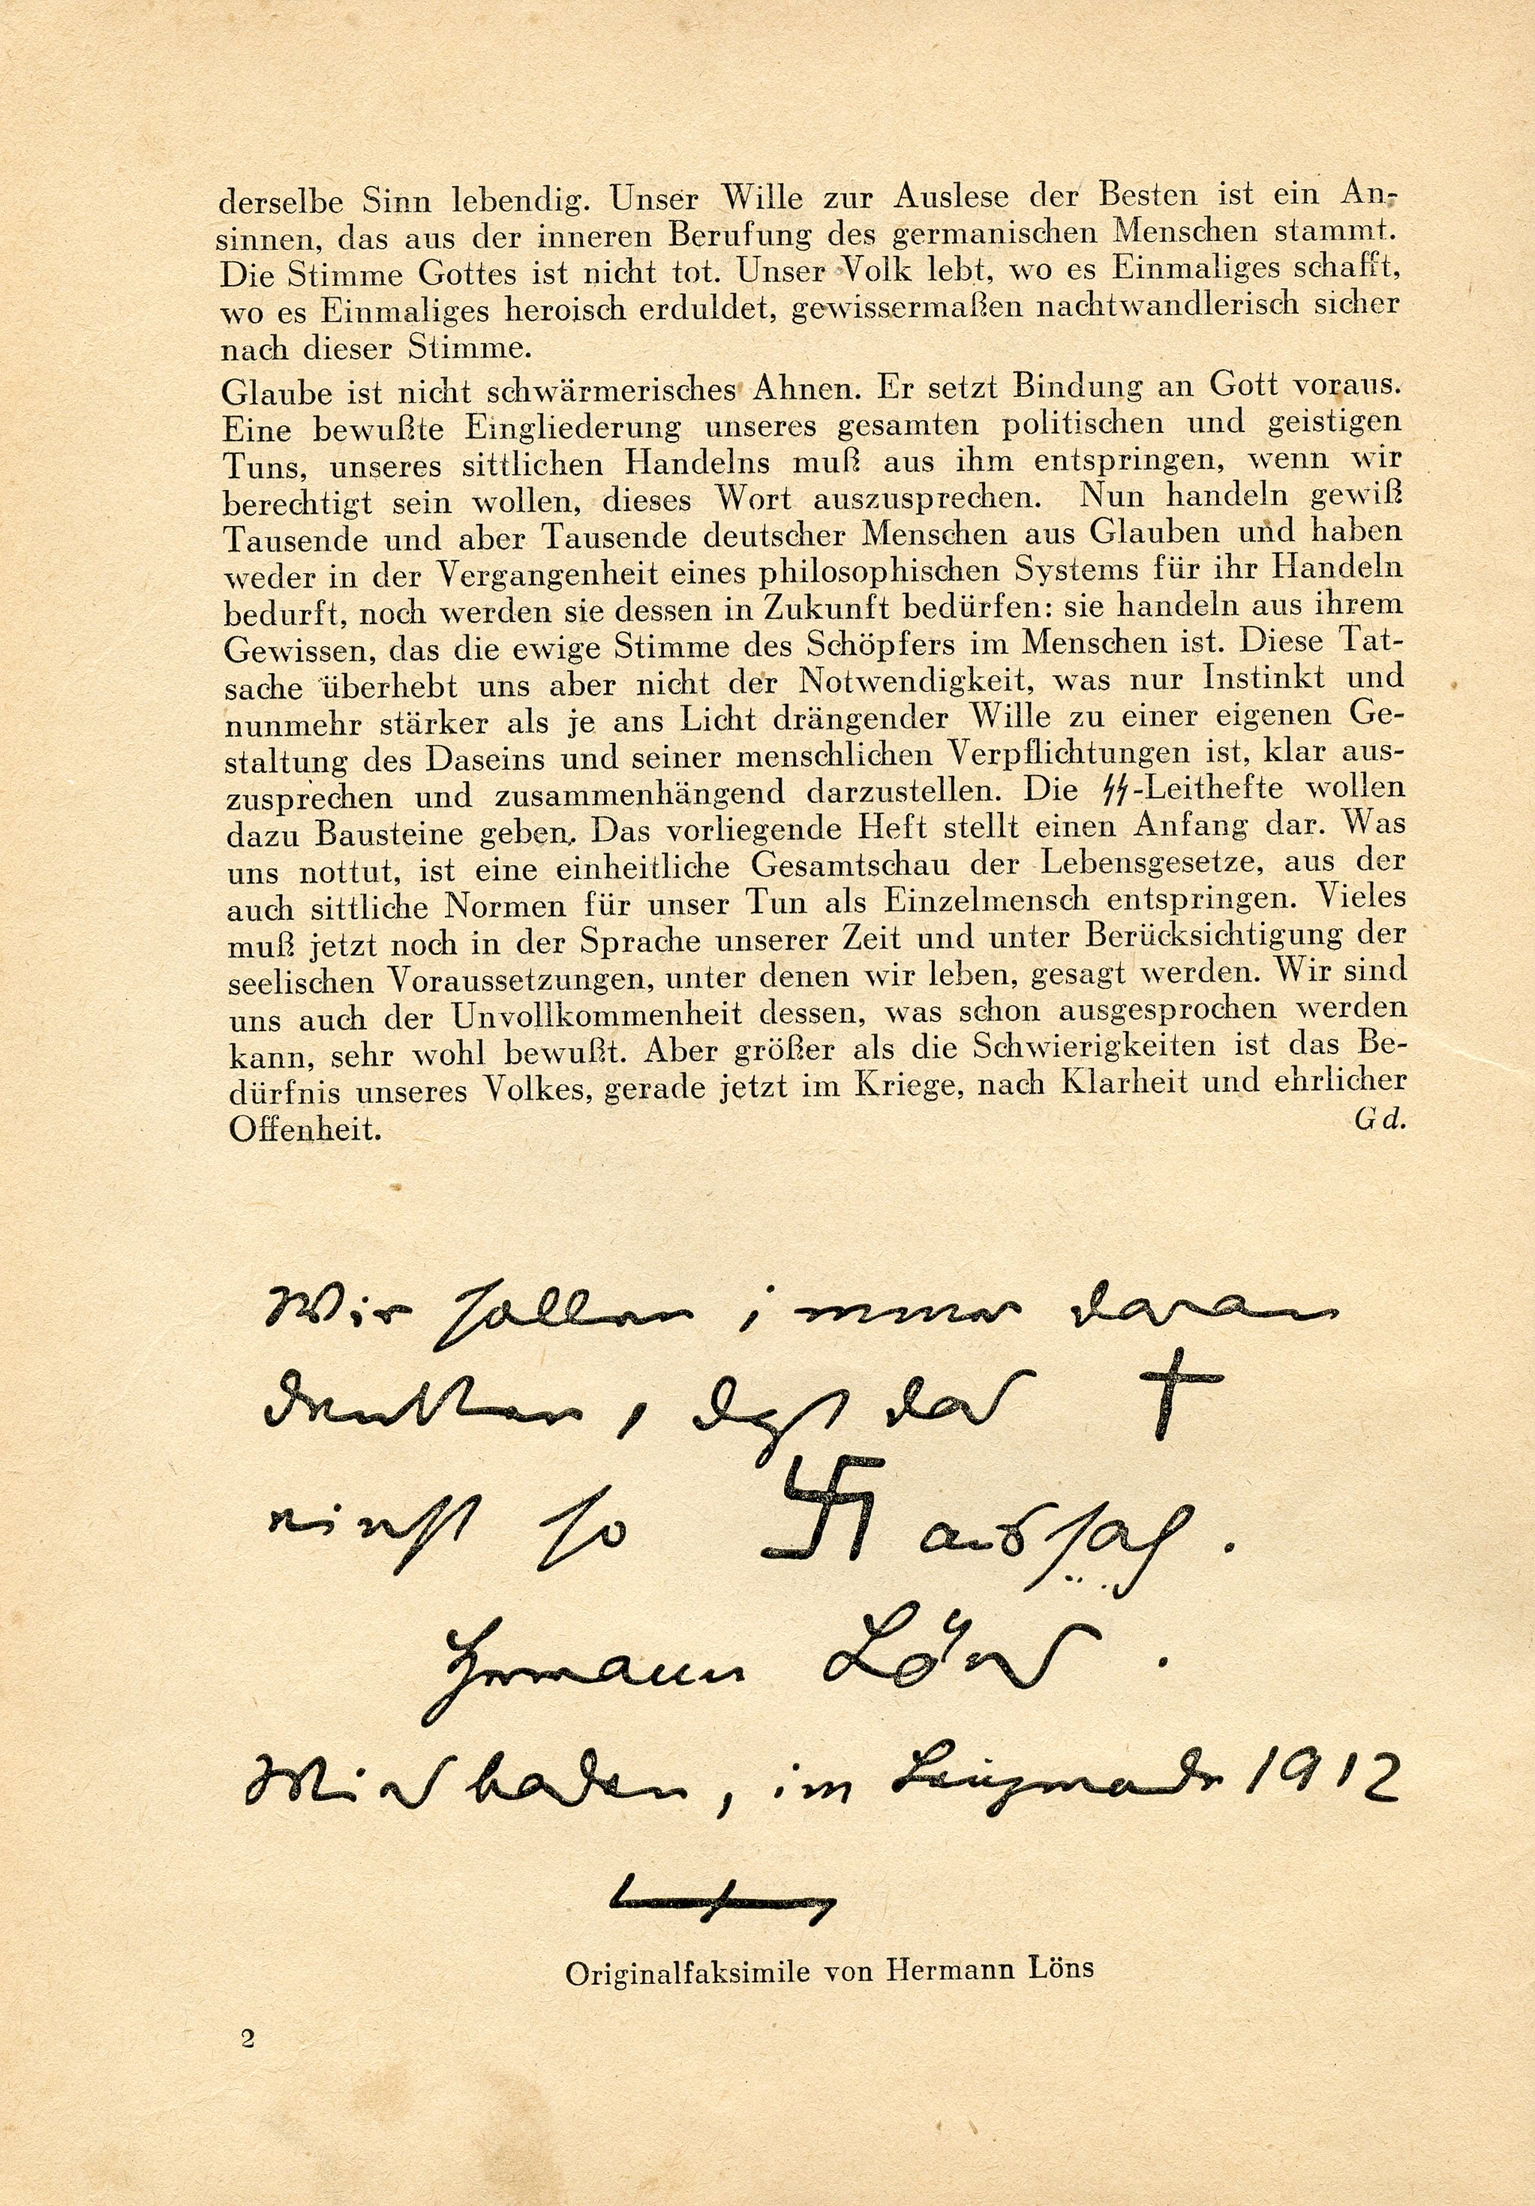 derselbe Sinn lebendig. Unser Wille zur Auslese der Besten ist ein An-
sinnen, das aus der inneren Berufung des germanischen Menschen stammt.
Die Stimme Gottes ist nicht tot. Unser Volk lebt, wo es Einmaliges schafft,
wo es Einmaliges heroisch erduldet, gewissermaßen nachtwandlerisch sicher
nach dieser Stimme.
Glaube ist nicht schwärmerisches Ahnen. Er setzt Bindung an Gott voraus.
Eine bewußte Eingliederung unseres gesamten politischen und geistigen
Tuns, unseres sittlichen Handelns muß aus ihm entspringen, wenn wir
berechtigt sein wollen, dieses Wort auszusprechen. Nun handeln gewiß
Tausende und aber Tausende deutscher Menschen aus Glauben und haben
weder in der Vergangenheit eines philosophischen Systems für ihr Handeln
bedurft, noch werden sie dessen in Zukunft bedürfen: sie handeln aus ihrem
Gewissen, das die ewige Stimme des Schöpfers im Menschen ist. Diese Tat-
sache überhebt uns aber nicht der Notwendigkeit, was nur Instinkt und
nunmehr stärker als je ans Licht drängender Wille zu einer eigenen Ge-
staltung des Daseins und seiner menschlichen Verpflichtungen ist, klar aus-
zusprechen und zusammenhängend darzustellen. Die ᛋᛋ-Leithefte wollen
dazu Bausteine geben. Das vorliegende Heft stellt einen Anfang dar. Was
uns nottut, ist eine einheitliche Gesamtschau der Lebensgesetze, aus der
auch sittliche Normen für unser Tun als Einzelmensch entspringen. Vieles
muß jetzt noch in der Sprache unserer Zeit und unter Berücksichtigung der
seelischen Voraussetzungen, unter denen wir leben, gesagt werden. Wir sind
uns auch der Unvollkommenheit dessen, was schon ausgesprochen werden
kann, sehr wohl bewußt. Aber größer als die Schwierigkeiten ist das Be-
dürfnis unseres Volkes, gerade jetzt im Kriege, nach Klarheit und ehrlicher
Offenheit. Gd.
Wir sollen immer daran
denken, daß das †
einst so 卐 aussah.
Hermann Löns.
Wiesbaden, im 1912
Originalfaksimile von Hermann Löns
2